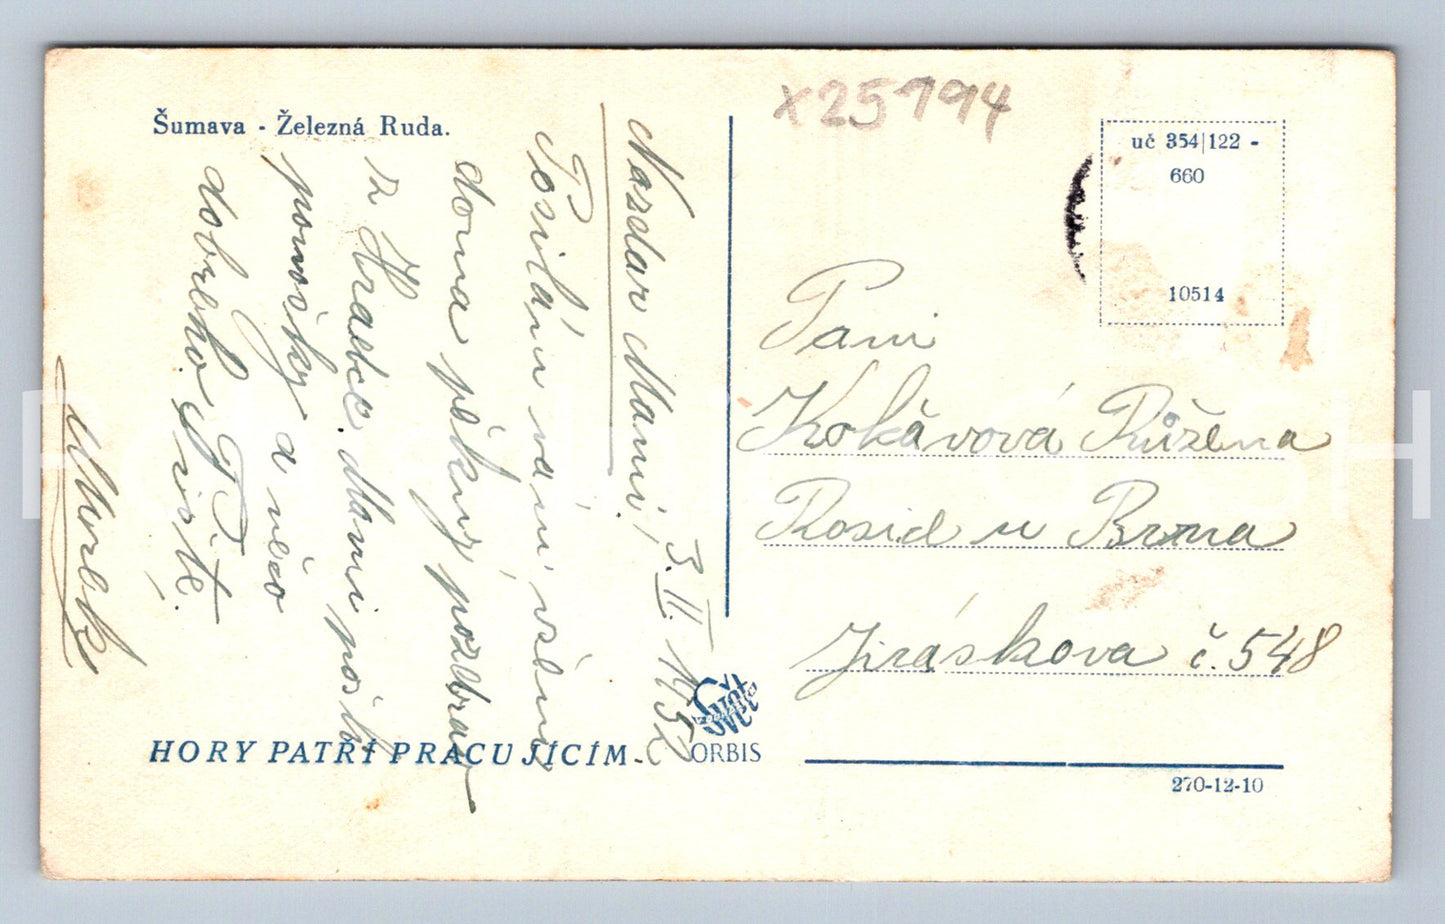 x25994
Šumava - Železná Ruda.
uč 354|122 -
660
10514
Nazdar Mami,
3. II. 1952
Posílám vám všem
doma pěkný pozdrav
z Hradce. Mami pošli
ponožky a něco
dobrého. P. T.
Mirek
Paní
Kokávová Růžena
Rosid u Brna
Jiráskova č. 548
HORY PATŘÍ PRACUJÍCÍM
ORBIS
270-12-10